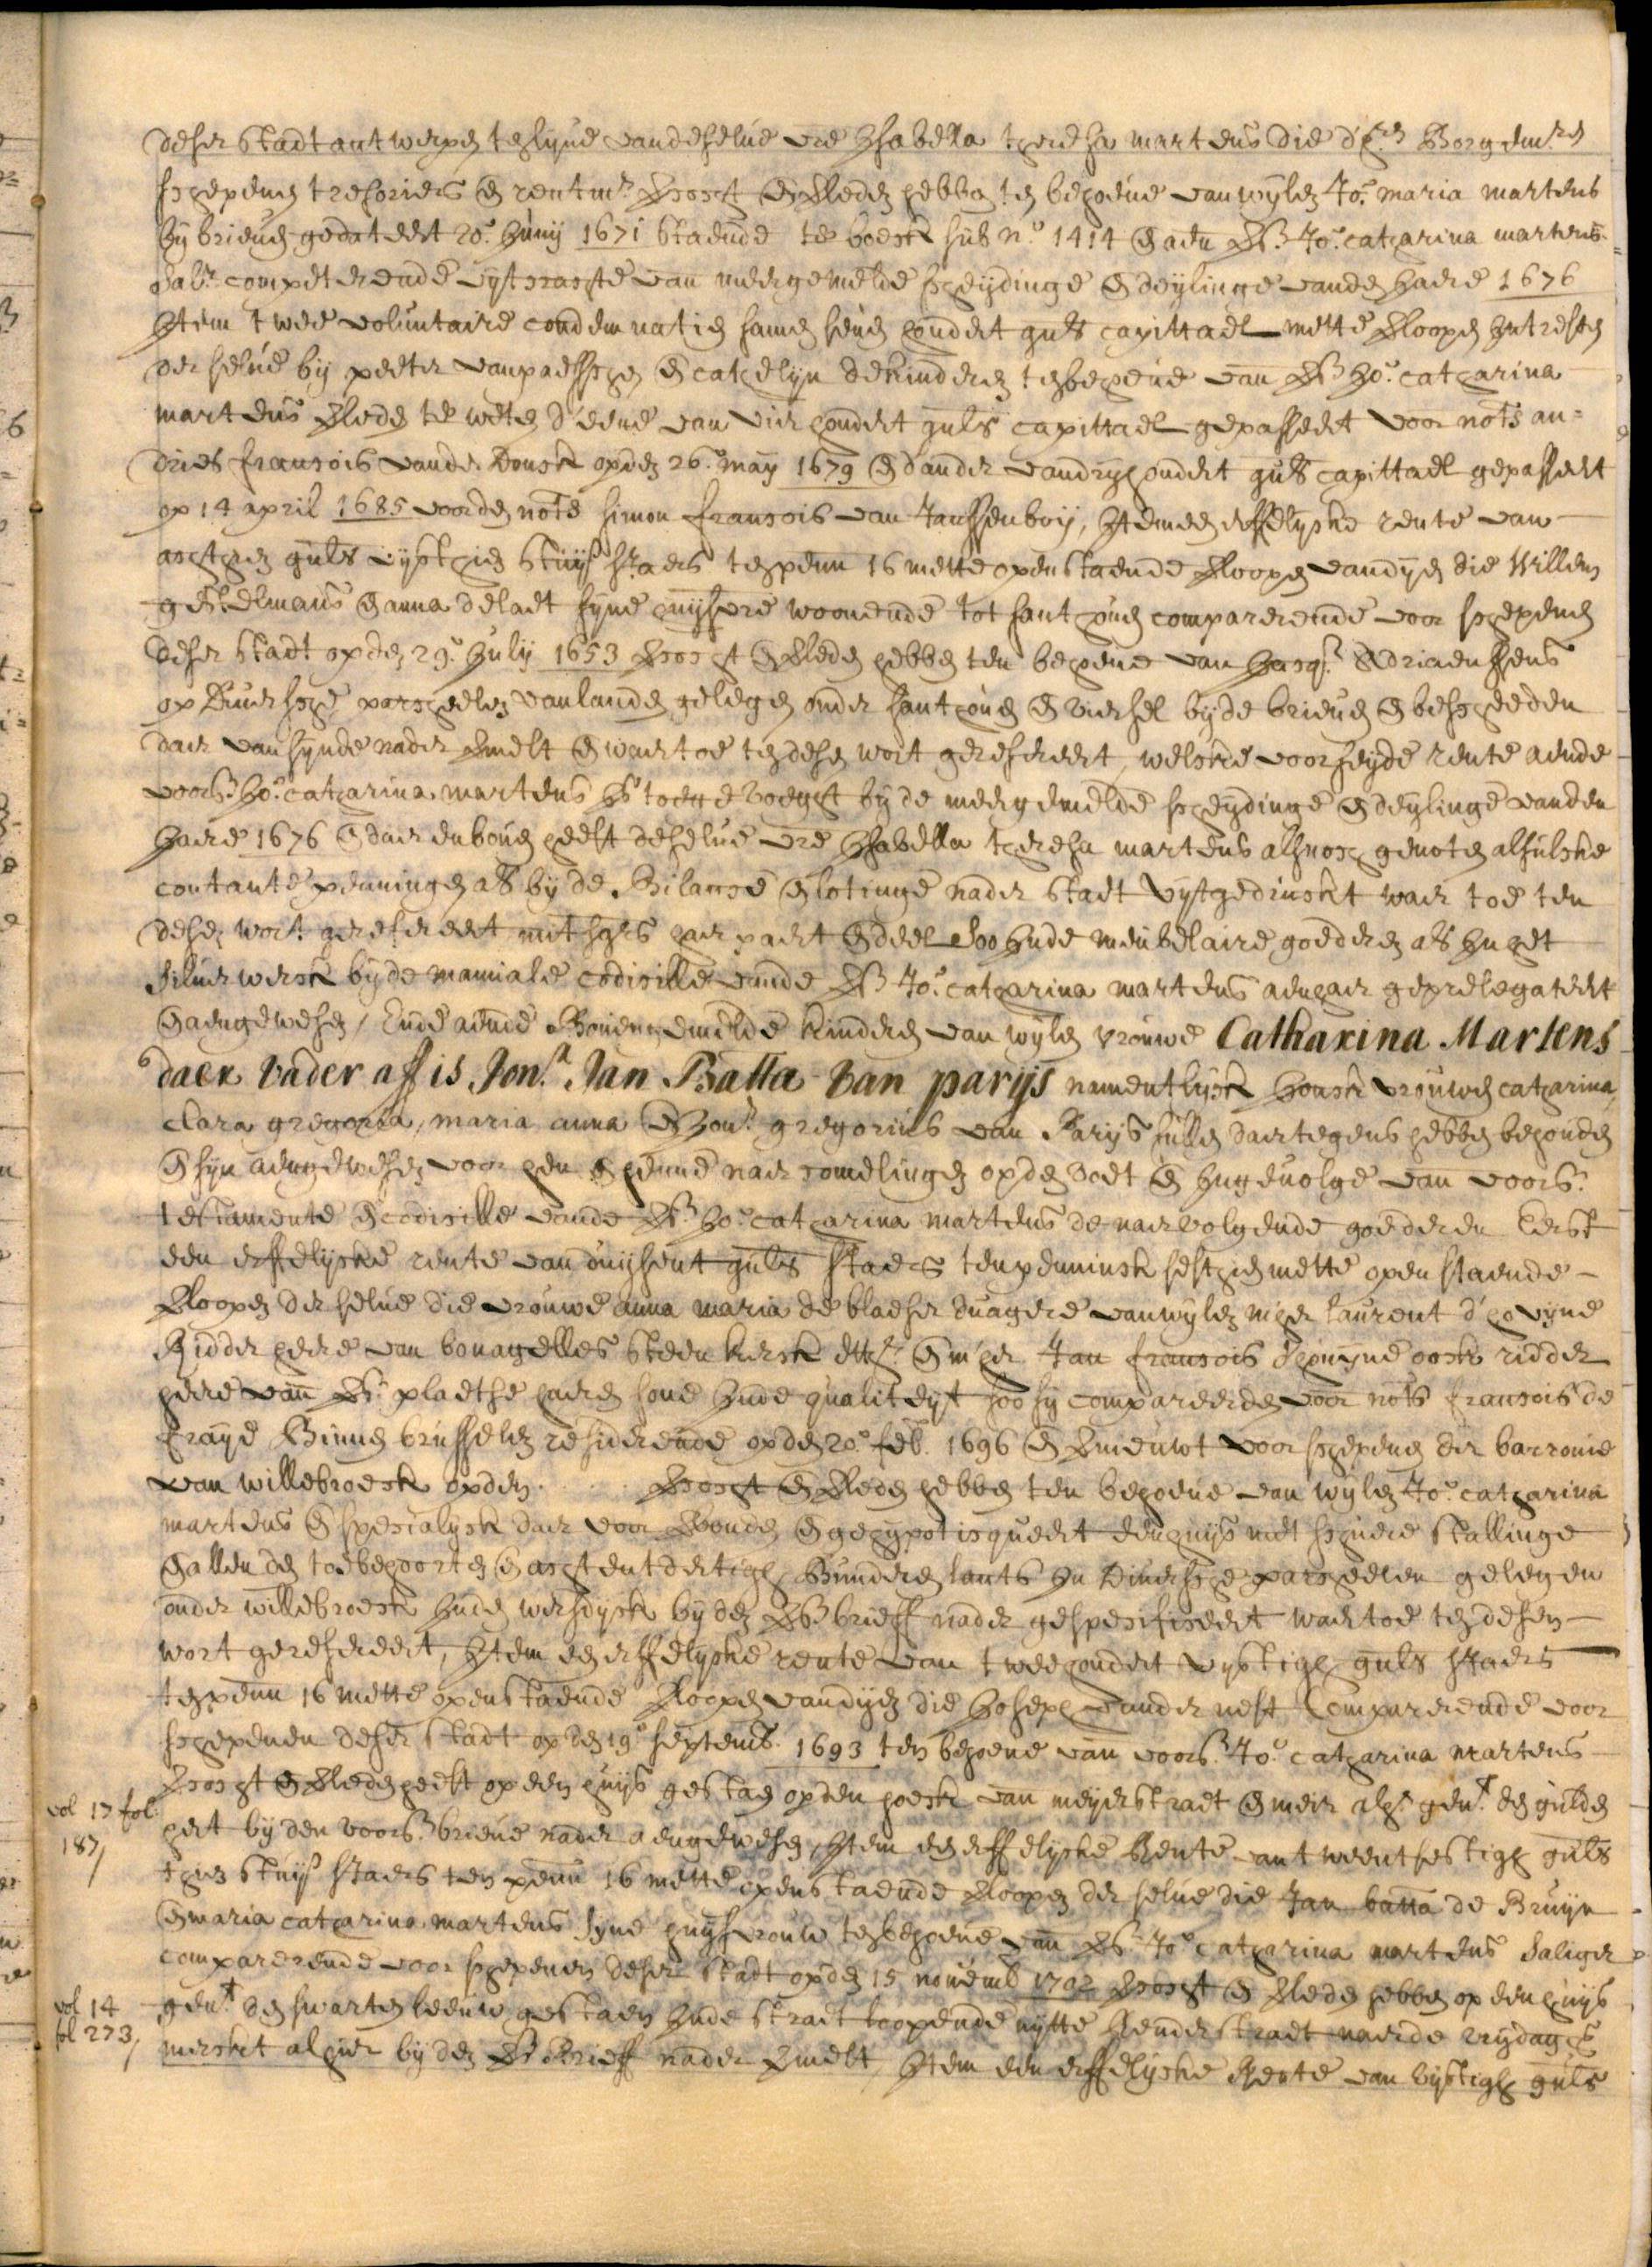 deser stadt antwerpen te lyne vandeselve vre Isabella theresa martens die d'hrn Borgemrs
schepenen tresoriers en rentmr vercocht en beleden hebben ten behoeve van wylen Jo. maria martens
by brieven gedateert 20. Juny 1671 staende te boeck sub no. 1414 en aen de vs. Jo. catharina martens
salr. competerende uyt crachte van meergemelde scheydinge en deylinge vanden Jaere 1676
Item twee voluntaire condemnatien samen seven hondert guls capittael mette verloopen intresten
der selve by peeter van paesschen en cathelyn dekinderen ten behoeve van vs. Jo. catharina
martens beleden te weten d'eene van vier hondert guls capittael gepasseert voor nots an=
dries fransois vander Donck op den 26. may 1679 en d'ander van dry hondert guls capittael gepasseert
op 14 april 1685 voor den nots simon fransois van Janssenboy, Item een erffelycke rente van
achthien guls vyfthien stuyvers sjaers ten penn 16 mette openstaende verloopen van dyen die Willem
geldelmans en anna delaet syne huysvre woonende tot santhoven comparerende voor schepenen
deser stadt op den 29. July 1653 vercocht en beleden hebben ten behoeve van Adriaenssens
op diversche parceelen van landen gelegen onder santhoven en viersel by de brieven en bescheeden
daer van synde nader vermelt en waer toe ten desen wort gerefereert, welcke voorseyde rente aende
voors. Jo. catharina martens is toegevoeght by de meergemelde scheydinge en deylinge vanden
Jaere 1676 en daer en boven heeft deselve vre Isabella theresa martens alsnoch genoten alsulcke
contante penningen als by de Bilance en lotinge nader staet uytgedruckt waer toe ten
desen wort gerefereert mitsgrs haer paert en deel soo inde meubelaire goederen als in het
silverwerck by de manuale codicille vande vs. Jo. catharina martens aen haer geprelegateert
en aengewesen / Ende aende Bovengemelde kinderen van wylen vrouwe Catharina Martens
daer vader aff is Jonr. Jan Batta van parys namentlyck Jonck vrouwen catharina,
clara gregoria, maria anna en Jonr. gregorius van Parys sullen daertegens hebben behouden
en syn aengewesen voor hen en henne naercomelingen op den voet en ingevolge van voors.
testamente en codicille vande vs. Jo. catharina martens de naervolgende goederen Eerst
een erffelycke rente van duysent guls sjaers ten penninck sesthien mette openstaende
verloopen der selve die vrouwe anna maria de blaeser duagere van wylen mher laurent d'hovyne
Ridder heere van bouagelles steenkerck ettc. en mher Jan fransois d'hovyne oock ridder
heere van vs. plaetse haeren sone inde qualiteyt soo sy compareerden voor nots fransois de
fraye Binnen brusselen residerende op den 20. feb. 1696 en vernieuwt voor schepenen der barronie
van willebroeck op den . . . . vercocht en beleden hebben ten behoeve van wylen Jo. catharina
martens en specialyck daer voor verbonden en gehypotisqueert een huys met schuere stallinge
en allen den toebehoorten en achtentdertigh Bunderen lants in diversche parceelen gelegen
onder willebroeck by den vs. brieff nader gespecificeert waer toe ten desen
wort gerefereert, Item een erffelycke rente van tweehondert vyftigh guls sjaers
ten penn 16 mette openstaende verloopen van dyen die Joseph vander nest Comparerende voor
schepenen deser stadt op den 19. septemb. 1693 ten behoeve van voors. Jo. catharina martens
vercocht en beleden heeft op een huys gestaen op den hoeck van meyerstraet en meir alh. gent. den gulden
hert by den voors. brieve nader aengewesen, Item een erffelycke Rente van tweentsestigh guls
thien stuyv sjaers ten penn 16 mette openstaende verloopen der selve die Jan batta de Bruyn
en maria catharina martens syne huysvrouw ten behoeve van vs. Jo. catharina martens saliger
comparerende voor schepenen deser stadt op den 15 novemb 1702 vercocht en beleden hebben op een huys
gent. den swarten leeuw gestaen inde straet loopende uytte straet naer de vrydaghs
merckt alhier by den vs. Brieff nader vermelt, Item een erffelycke Rente van vyftigh guls
vol 17 fol:
187/
vol 14
fol 273/